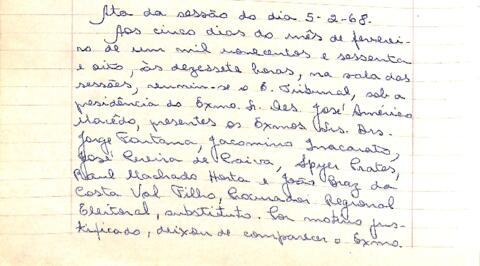 Ata da sessão do dia 5-2-68.
Aos cinco dias do mês de feverei-
ro de um mil novecentos e sessenta
e oito, às dezessete horas, na sala das
sessões, reuniu-se o E. Tribunal, sob a
presidência do Exmo. Sr. Des. José Américo
Macêdo, presentes os Exmos Srs. Drs.
Jorge Fontana, Jacomino Inacarato,
José Pereira de Paiva, Spyer Prates,
Raul Machado Horta e João Braz da
Costa Val Filho, Procurador Regional
Eleitoral, substituto. Por motivo jus-
tificado, deixou de comparecer o Exmo.